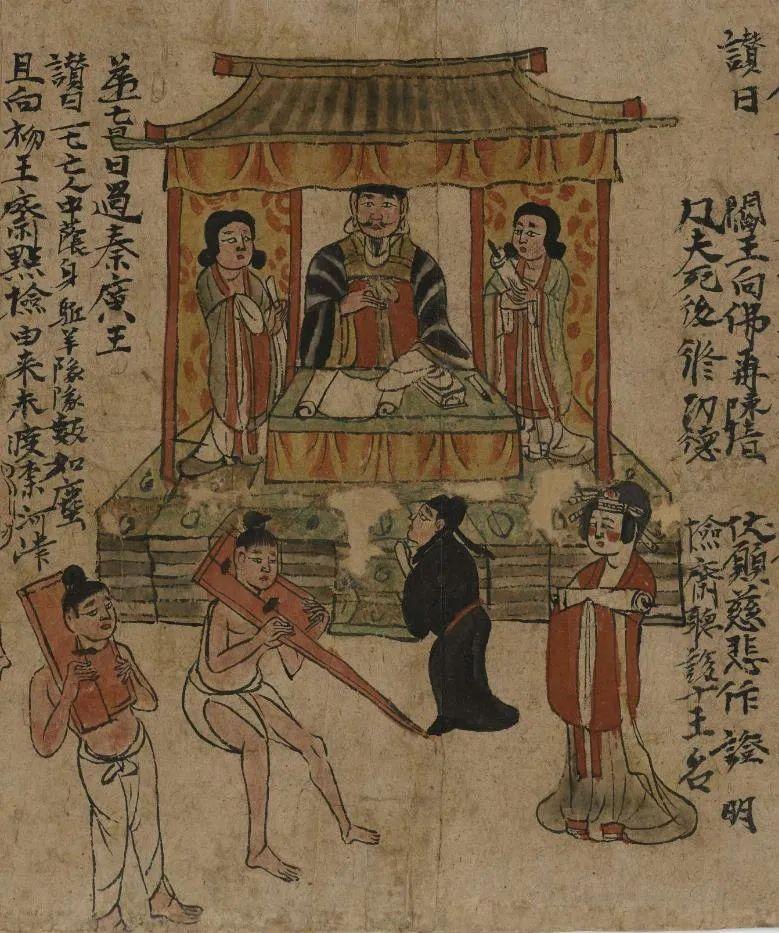 讚曰
閻王向佛再陳情 伏願慈悲作證明
凡夫死後修功德 撿齋聽說十王名
苐一七日過秦廣王
讚曰 一七亡人中蔭身 駈羊隊隊數如塵
且向初王齋點撿 由来未渡柰河